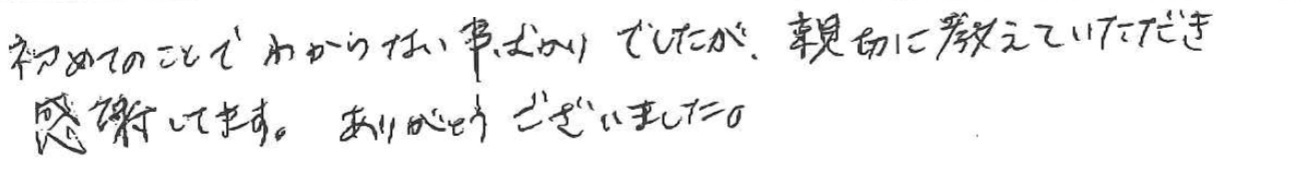 初めてのことでわからない事ばかりでしたが、親切に教えていただき
感謝してます。ありがとうございました。